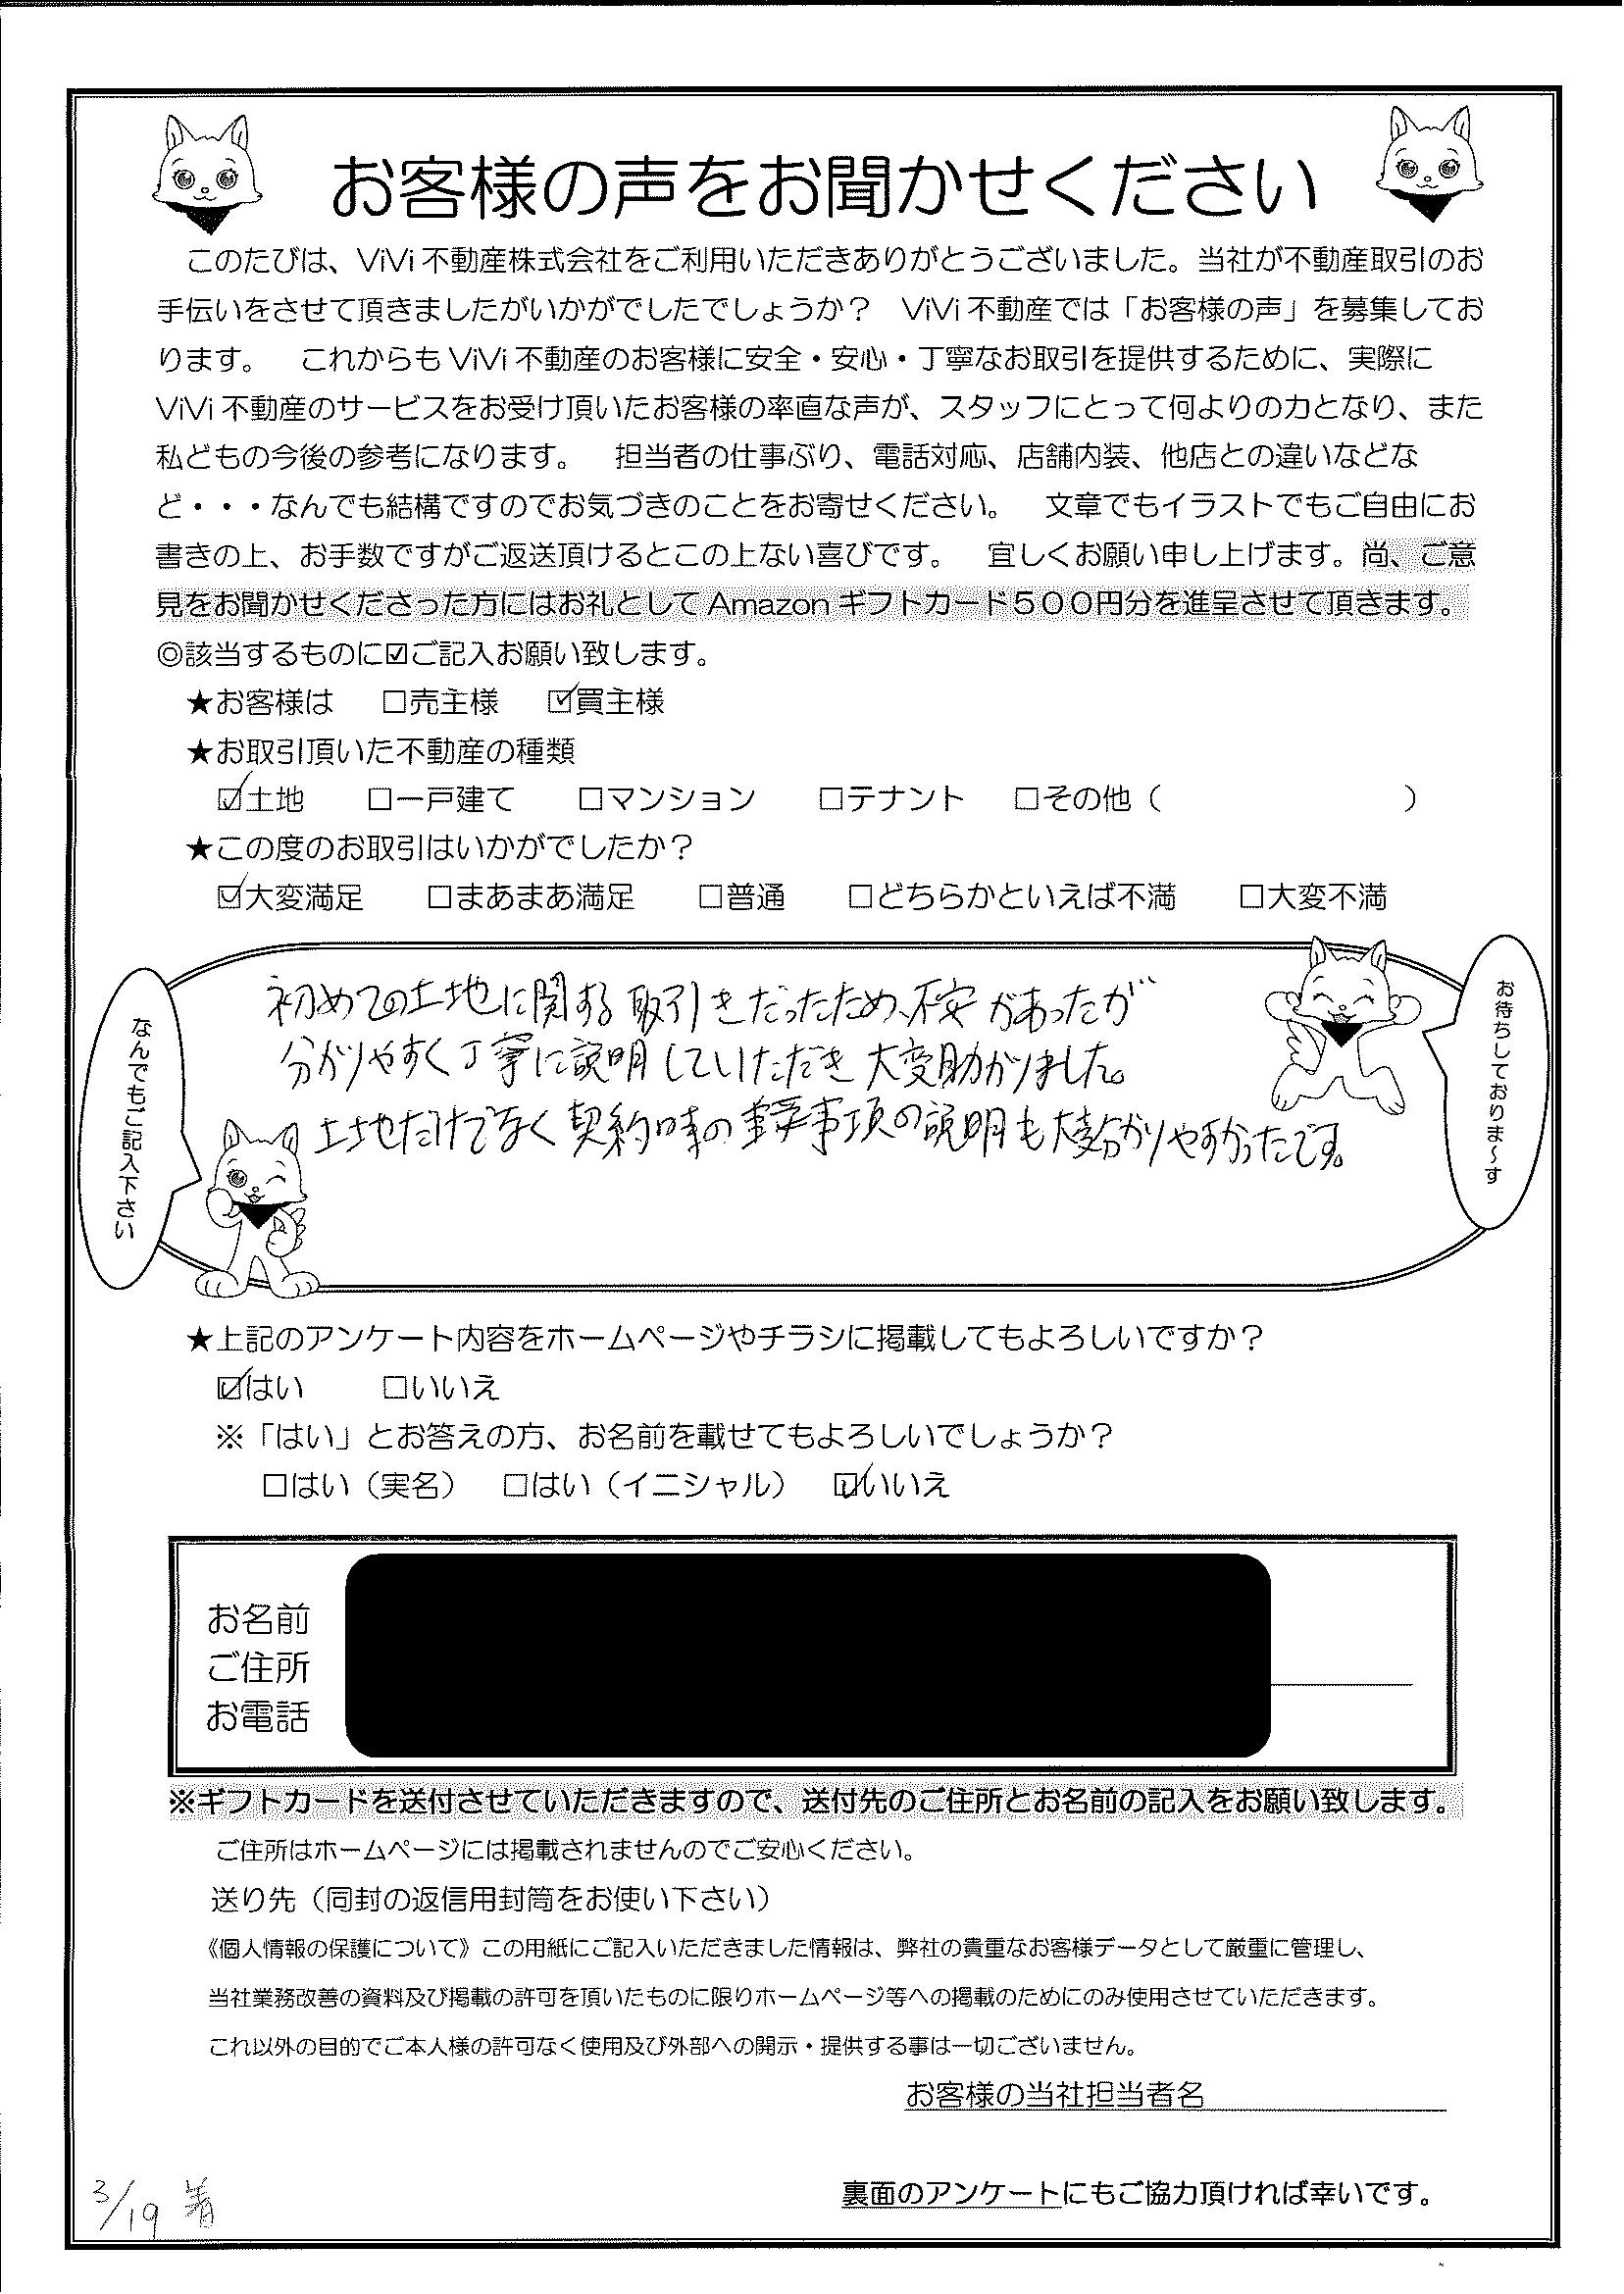 お客様の声をお聞かせください
このたびは、ViVi不動産株式会社をご利用いただきありがとうございました。当社が不動産取引のお
手伝いをさせて頂きましたがいかがでしたでしょうか？ ViVi不動産では「お客様の声」を募集してお
ります。 これからもViVi不動産のお客様に安全・安心・丁寧なお取引を提供するために、実際に
ViVi不動産のサービスをお受け頂いたお客様の率直な声が、スタッフにとって何よりの力となり、また
私どもの今後の参考になります。 担当者の仕事ぶり、電話対応、店舗内装、他店との違いなどな
ど・・・なんでも結構ですのでお気づきのことをお寄せください。 文章でもイラストでもご自由にお
書きの上、お手数ですがご返送頂けるとこの上ない喜びです。 宜しくお願い申し上げます。尚、ご意
見をお聞かせくださった方にはお礼としてAmazonギフトカード５００円分を進呈させて頂きます。
◎該当するものに☑ご記入お願い致します。
★お客様は □売主様 ☑買主様
★お取引頂いた不動産の種類
☑土地 □一戸建て □マンション □テナント □その他（ ）
★この度のお取引はいかがでしたか？
☑大変満足 □まあまあ満足 □普通 □どちらかといえば不満 □大変不満
なんでもご記入下さい
初めての土地に関する取引きだったため、不安があったが
分かりやすく丁寧に説明していただき大変助かりました。
土地だけでなく契約時の重要事項の説明も大変分かりやすかったです。
お待ちしておりま～す
★上記のアンケート内容をホームページやチラシに掲載してもよろしいですか？
☑はい □いいえ
※「はい」とお答えの方、お名前を載せてもよろしいでしょうか？
□はい（実名） □はい（イニシャル） ☑いいえ
お名前
ご住所
お電話
※ギフトカードを送付させていただきますので、送付先のご住所とお名前の記入をお願い致します。
ご住所はホームページには掲載されませんのでご安心ください。
送り先（同封の返信用封筒をお使い下さい）
《個人情報の保護について》この用紙にご記入いただきました情報は、弊社の貴重なお客様データとして厳重に管理し、
当社業務改善の資料及び掲載の許可を頂いたものに限りホームページ等への掲載のためにのみ使用させていただきます。
これ以外の目的でご本人様の許可なく使用及び外部への開示・提供する事は一切ございません。
お客様の当社担当者名
裏面のアンケートにもご協力頂ければ幸いです。
3/19 着